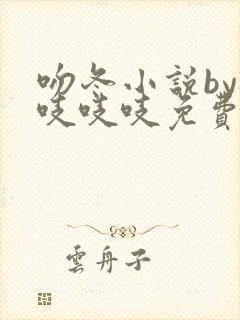 吻冬小説by
吱吱吱免費
雲舟子